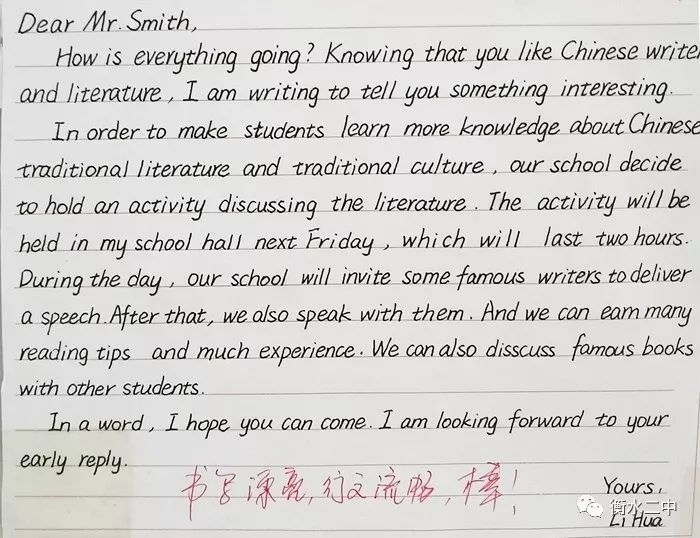 Dear Mr. Smith,
How is everything going? Knowing that you like Chinese writer
and literature, I am writing to tell you something interesting.
In order to make students learn more knowledge about Chinese
traditional literature and traditional culture, our school decide
to hold an activity discussing the literature. The activity will be
held in my school hall next Friday, which will last two hours.
During the day, our school will invite some famous writers to deliver
a speech. After that, we also speak with them. And we can earn many
reading tips and much experience. We can also disscuss famous books
with other students.
In a word, I hope you can come. I am looking forward to your
early reply.
书写漂亮,行文流畅,棒!
Yours,
Li Hua
衡水二中